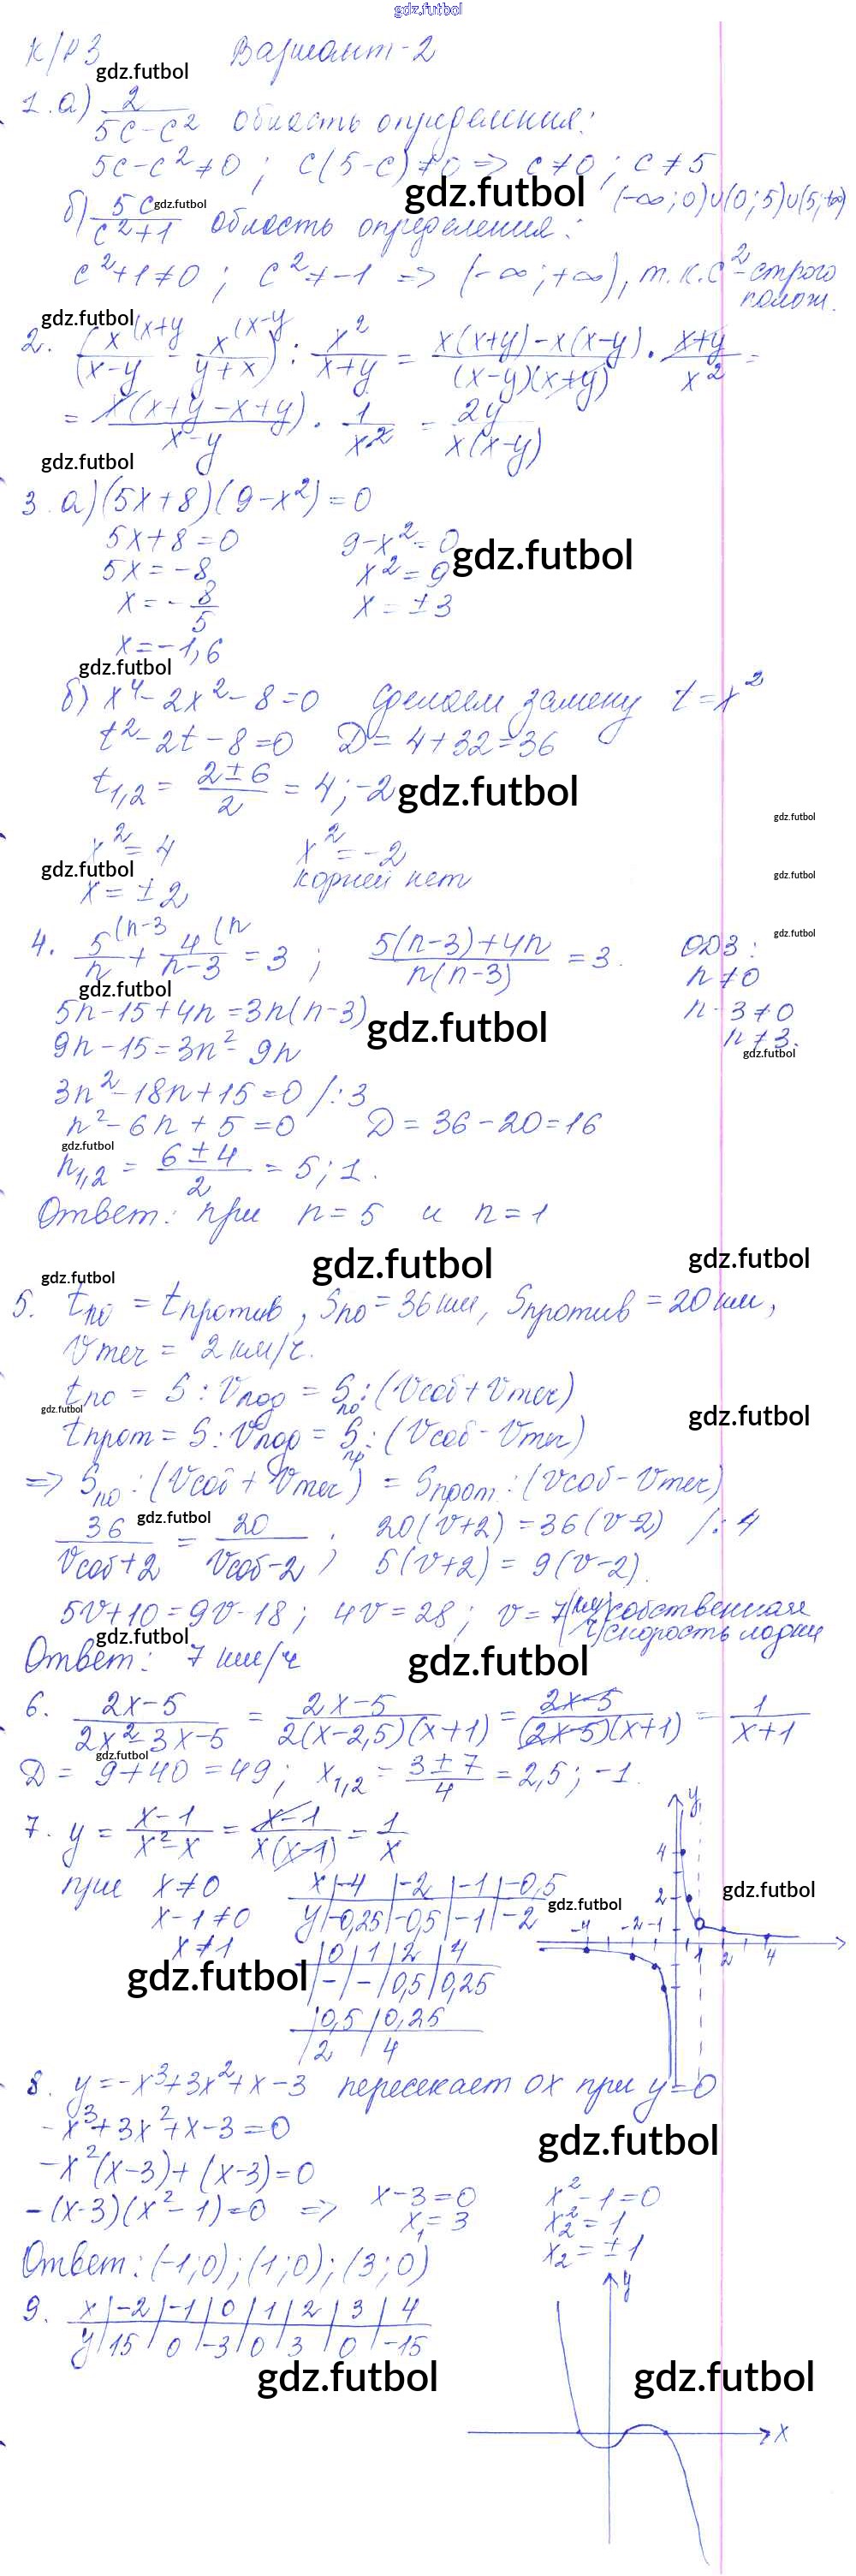 gdz.futbol
К/Р 3 Вариант-2
gdz.futbol
1. а) 2/(5c-c²) область определения:
5c-c²≠0 ; c(5-c)≠0 => c≠0 ; c≠5
gdz.futbol (-∞;0)∪(0;5)∪(5;+∞)
б) 5c/(c²+1) область определения:
gdz.futbol
c²+1≠0 ; c²≠-1 => (-∞;+∞), т.к. c² - строго
полож.
gdz.futbol
2. (x^(x+y/(x-y) - x^(x-y/(y+x)) : x²/(x+y) = (x(x+y)-x(x-y))/((x-y)(x+y)) · (x+y)/x² =
= x(x+y-x+y)/(x-y) · 1/x² = 2y/(x(x-y))
gdz.futbol
3. а) (5x+8)(9-x²)=0
5x+8=0 9-x²=0
gdz.futbol
5x=-8 x²=9
x=-8/5 x=±3
x=-1,6
gdz.futbol
б) x⁴-2x²-8=0 Сделаем замену t=x²
t²-2t-8=0 D=4+32=36
t1,2 = (2±6)/2 = 4;-2
gdz.futbol
gdz.futbol
x²=4 x²=-2
gdz.futbol
gdz.futbol
x=±2 корней нет
4. 5^(n-3/n + 4^(n/(n-3) = 3 ; (5(n-3)+4n)/(n(n-3)) = 3. ОДЗ:
gdz.futbol
n≠0
gdz.futbol
5n-15+4n=3n(n-3) n-3≠0
gdz.futbol
9n-15=3n²-9n n≠3.
gdz.futbol
3n²-18n+15=0 /:3
n²-6n+5=0 D=36-20=16
gdz.futbol
n1,2 = (6±4)/2 = 5;1.
Ответ: при n=5 и n=1
gdz.futbol
gdz.futbol
gdz.futbol
5. tпо = tпротив, Sпо=36км, Sпротив=20км,
Vтеч = 2км/ч.
tпо = S:Vлод = Sпо:(Vсоб+Vтеч)
gdz.futbol
gdz.futbol
tпрот = S:Vлод = Sпр:(Vсоб-Vтеч)
=> Sпо:(Vсоб+Vтеч) = Sпрот:(Vсоб-Vтеч)
gdz.futbol
36/(Vсоб+2) = 20/(Vсоб-2) ; 20(v+2)=36(v-2) /:4
5(v+2)=9(v-2).
5v+10=9v-18; 4v=28; v=7(км/ч) собственная
скорость лодки
gdz.futbol
Ответ: 7 км/ч
gdz.futbol
6. (2x-5)/(2x²-3x-5) = (2x-5)/(2(x-2,5)(x+1)) = (2x-5)/((2x-5)(x+1)) = 1/(x+1)
gdz.futbol
D = 9+40=49; x1,2 = (3±7)/4 = 2,5; -1.
7. y = (x-1)/(x²-x) = (x-1)/(x(x-1)) = 1/x
y
4
при x≠0 x|-4|-2|-1|-0,5
2
gdz.futbol
gdz.futbol
x-1≠0 y|-0,25|-0,5|-1|-2
-4 -2 -1
x≠1 |0|1|2|4
1 2 4
gdz.futbol
|-|-|0,5|0,25
|0,5|0,25
|2|4
8. y=-x³+3x²+x-3 пересекает OX при y=0
-x³+3x²+x-3=0
gdz.futbol
-x²(x-3)+(x-3)=0
-(x-3)(x²-1)=0 => x-3=0 x²-1=0
x₁=3 x₂²=1
x₂=±1
Ответ: (-1;0); (1;0); (3;0)
y
9. x|-2|-1|0|1|2|3|4
y|15|0|-3|0|3|0|-15
gdz.futbol
gdz.futbol
x